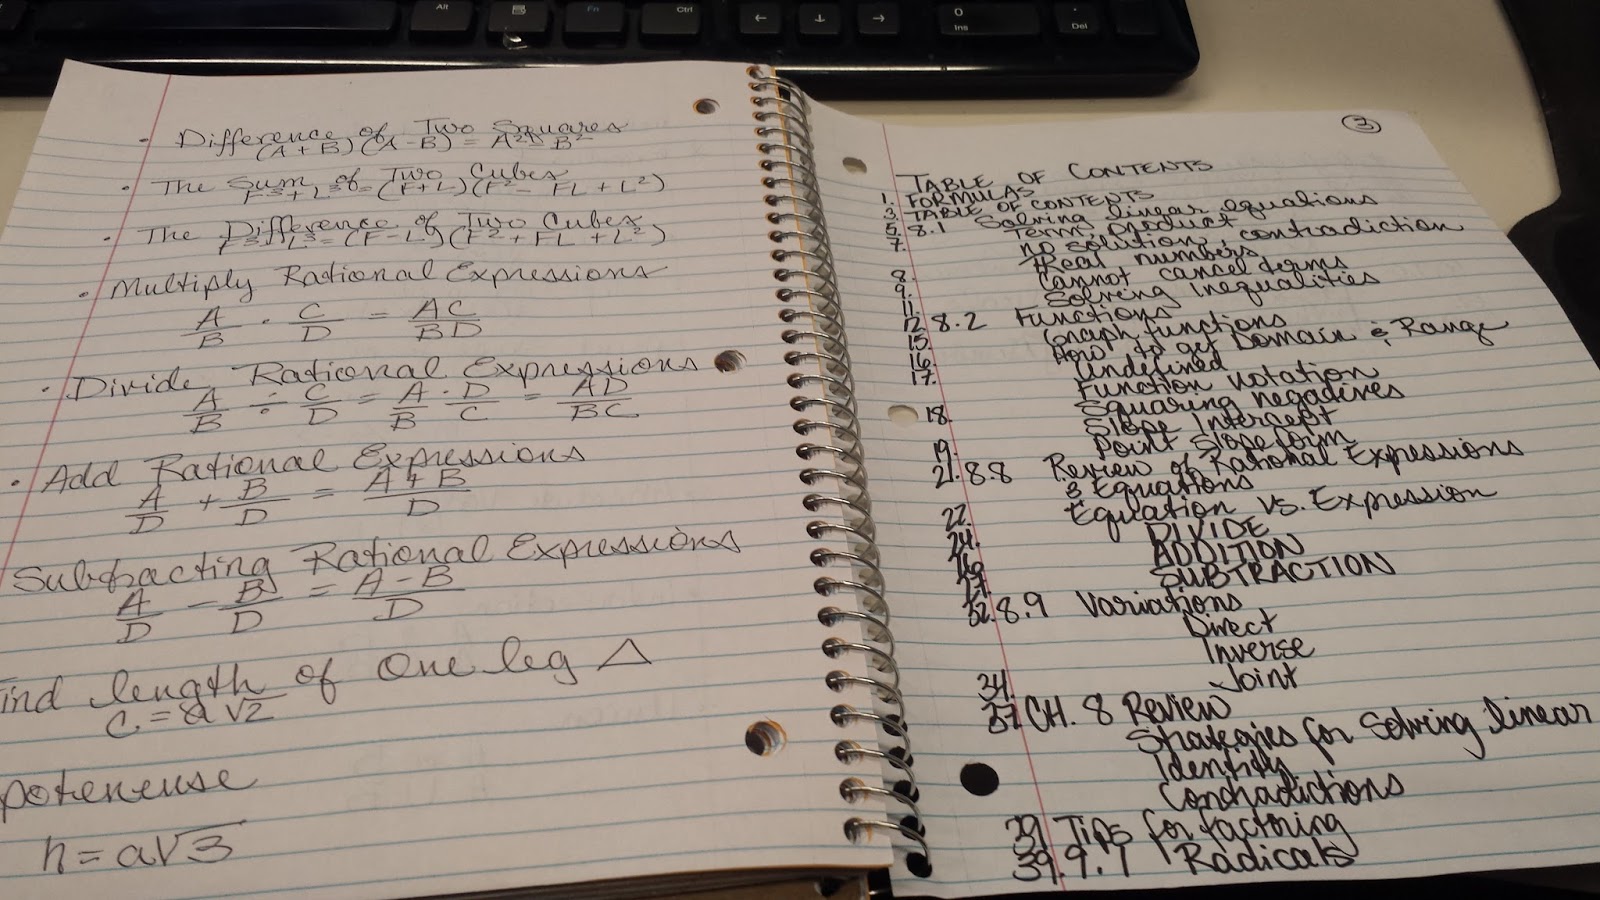 Alt
Fn
Ctrl
←
↓
→
0
Ins
.
Del
· Difference of Two Squares
(A + B)(A - B) = A² - B²
· The Sum of Two Cubes
F³ + L³ = (F + L)(F² - FL + L²)
· The Difference of Two Cubes
F³ - L³ = (F - L)(F² + FL + L²)
· Multiply Rational Expressions
A/B · C/D = AC/BD
· Divide Rational Expressions
A/B ÷ C/D = A/B · D/C = AD/BC
· Add Rational Expressions
A/D + B/D = A + B/D
Subtracting Rational Expressions
A/D - B/D = A - B/D
ind length of one leg △
c = a√2
potenuse
h = a√3
3
TABLE OF CONTENTS
1. FORMULAS
3. TABLE OF CONTENTS
5. 8.1 Solving linear equations
7. Terms product
no solution, contradiction
Real numbers
8. Cannot cancel terms
9. Solving Inequalities
11.
12. 8.2 Functions
15. Graph functions
16. How to get Domain & Range
17. Undefined
Function Notation
Squaring negatives
18. Slope Intercept
19. Point Slope form
21. 8.8 Review of Rational Expressions
& Equations
22. Equation vs. Expression
24. DIVIDE
ADDITION
SUBTRACTION
32. 8.9 Variations
Direct
Inverse
34. Joint
37. CH. 8 Review
Strategies for Solving linear
Identity
Contradictions
39. Tips for factoring
39. 9.1 Radicals